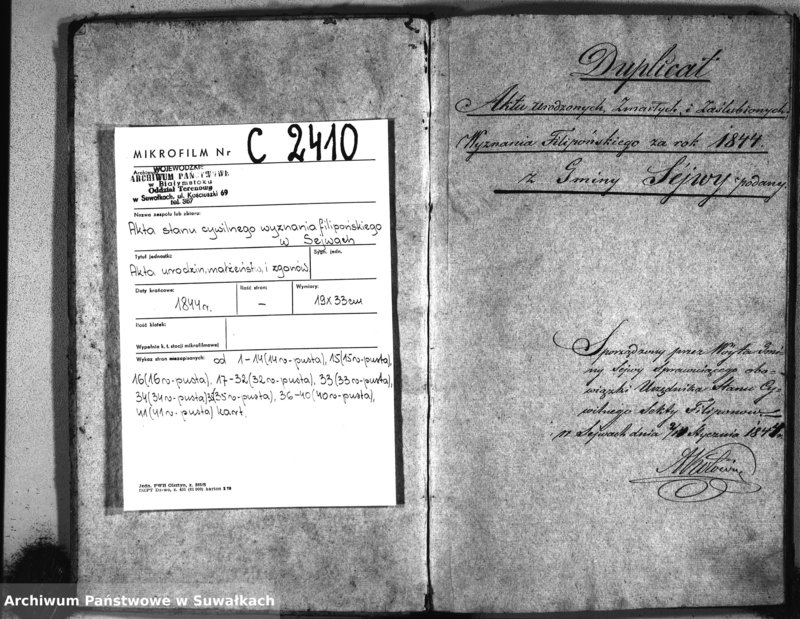 MIKROFILM Nr C 2410
WOJEWÓDZKIE
ARCHIWUM PAŃSTWOWE
w Białymstoku
Oddział Terenowy
w Suwałkach, ul. Kościuszki 69
tel. 367
Nazwa zespołu lub zbioru:
Akta stanu cywilnego wyznania filipońskiego
w Sejwach
Tytuł jednostki:
Sygn. jedn.
Akta urodzin, małżeństw, i zgonów
Daty krańcowe:
Ilość stron:
Wymiary:
1844 r.
—
19 x 33 cm
Ilość klatek:
Wypełnia k. t. stacji mikrofilmowej
Wykaz stron niezapisanych: od 1-14 (14v-pusta), 15 (15v-pusta),
16 (16v-pusta), 17-32 (32v-pusta), 33 (33v-pusta),
34 (34v-pusta) 35 (35v-pusta), 36-40 (40v-pusta),
41 (41v-pusta) kart.
2
Duplicat
Aktu urodzonych, Zmarłych, i Zaślubionych
Wyznania Filipońskiego za rok 1844.
z Gminy Sejwy podany
Sporządzony przez Woyta Gmi-
ny Sejwy sprawuiącego obo-
wiązki Urzędnika Stanu Cy-
wilnego Sekty Filiponow
w Sejwach dnia Stycznia 1844 r.
Archiwum Państwowe w Suwałkach